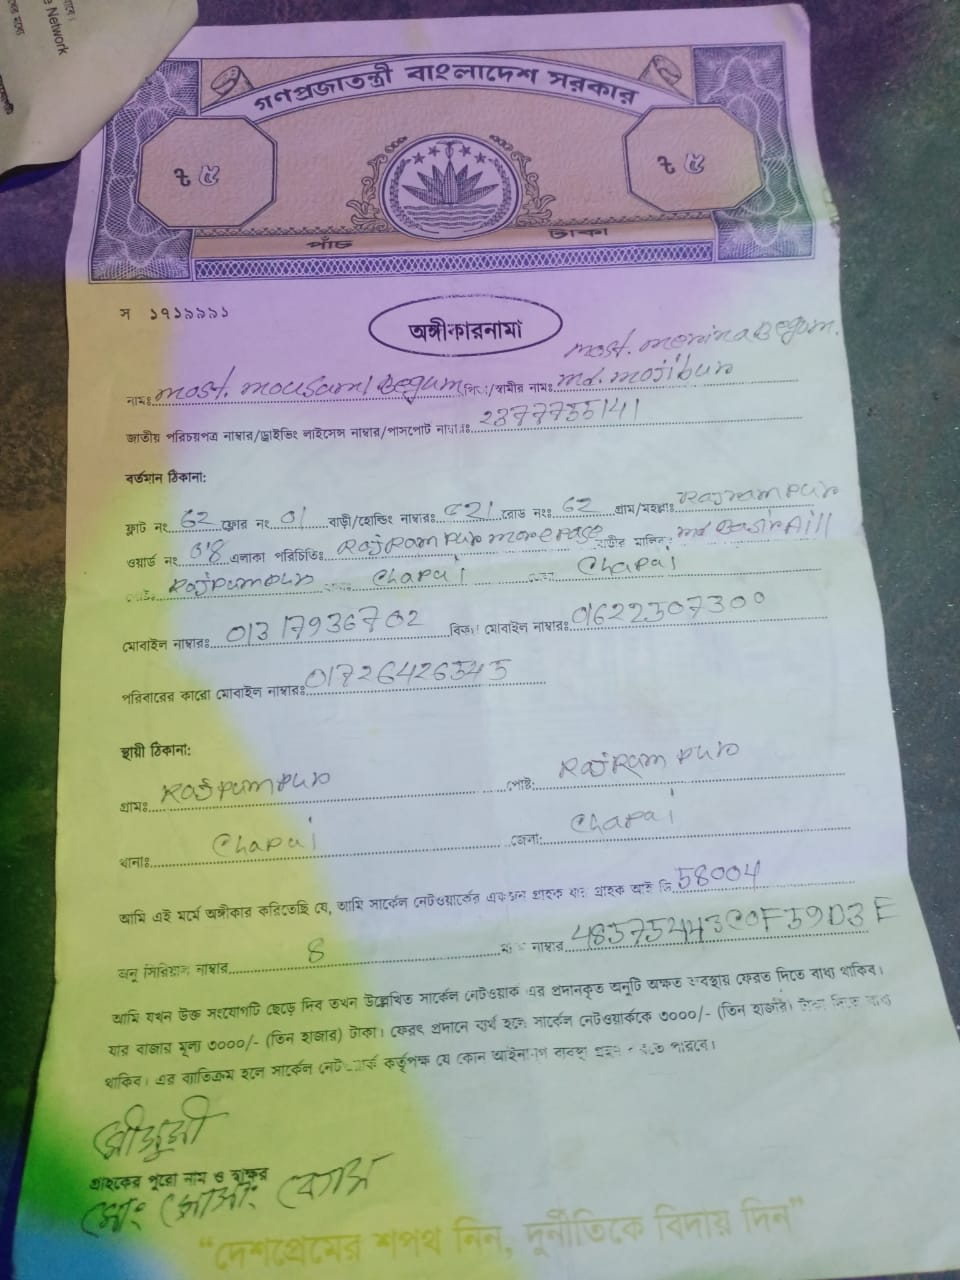 e Network
গণপ্রজাতন্ত্রী বাংলাদেশ সরকার
৳ ৫ ৳ ৫
পাঁচ টাকা
স ১৭১৯৯৯১
অঙ্গীকারনামা
most. monina Begum.
নামঃ most. mousami Begum পিতা/স্বামীর নামঃ md. mojibur
জাতীয় পরিচয়পত্র নাম্বার/ড্রাইভিং লাইসেন্স নাম্বার/পাসপোর্ট নাম্বারঃ 2377735141
বর্তমান ঠিকানা:
ফ্লাট নং 62 ফ্লোর নং 01 বাড়ী/হোল্ডিং নাম্বারঃ রোড নংঃ 62 গ্রাম/মহল্লাঃ Rajrampur
ওয়ার্ড নং 08 এলাকা পরিচিতিঃ Rajrampur more বাড়ীর মালিক: md
Rajrampur Chapai Chapai
মোবাইল নাম্বারঃ 01317936702 বিকল্প মোবাইল নাম্বারঃ 01622307300
পরিবারের কারো মোবাইল নাম্বারঃ 01726426545
স্থায়ী ঠিকানা:
গ্রামঃ Rajrampur পোষ্ট: Rajrampur
থানাঃ Chapai জেলা: Chapai
আমি এই মর্মে অঙ্গীকার করিতেছি যে, আমি সার্কেল নেটওয়ার্কের একজন গ্রাহক যার গ্রাহক আই ডি 58004
অনু সিরিয়াল নাম্বার 8 নাম্বার 48575443C0F59D3E
আমি যখন উক্ত সংযোগটি ছেড়ে দিব তখন উল্লেখিত সার্কেল নেটওয়ার্ক এর প্রদানকৃত অনুটি অক্ষত অবস্থায় ফেরত দিতে বাধ্য থাকিব।
যার বাজার মূল্য ৩০০০/- (তিন হাজার) টাকা। ফেরৎ প্রদানে ব্যর্থ হলে সার্কেল নেটওয়ার্ককে ৩০০০/- (তিন হাজার) টাকা দিতে বাধ্য
থাকিব। এর ব্যতিক্রম হলে সার্কেল নেটওয়ার্ক কর্তৃপক্ষ যে কোন আইনানুগ ব্যবস্থা গ্রহণ করতে পারবে।
মৌসুমী
গ্রাহকের পুরো নাম ও স্বাক্ষর
“দেশপ্রেমের শপথ নিন, দুর্নীতিকে বিদায় দিন”